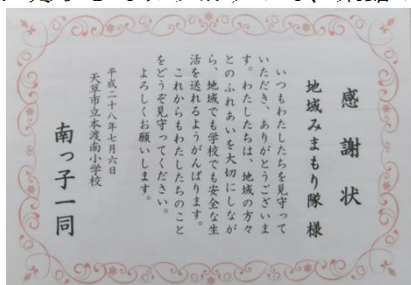 感謝状
地域みまもり隊 様
いつもわたしたちを見守って
いただき、ありがとうございま
す。わたしたちは、地域の方々
とのふれあいを大切にしなが
ら、地域でも学校でも安全な生
活を送れるようがんばります。
これからもわたしたちのこと
をどうぞ見守ってください。
よろしくお願いします。
平成二十八年七月六日
天草市立本渡南小学校
南っ子一同